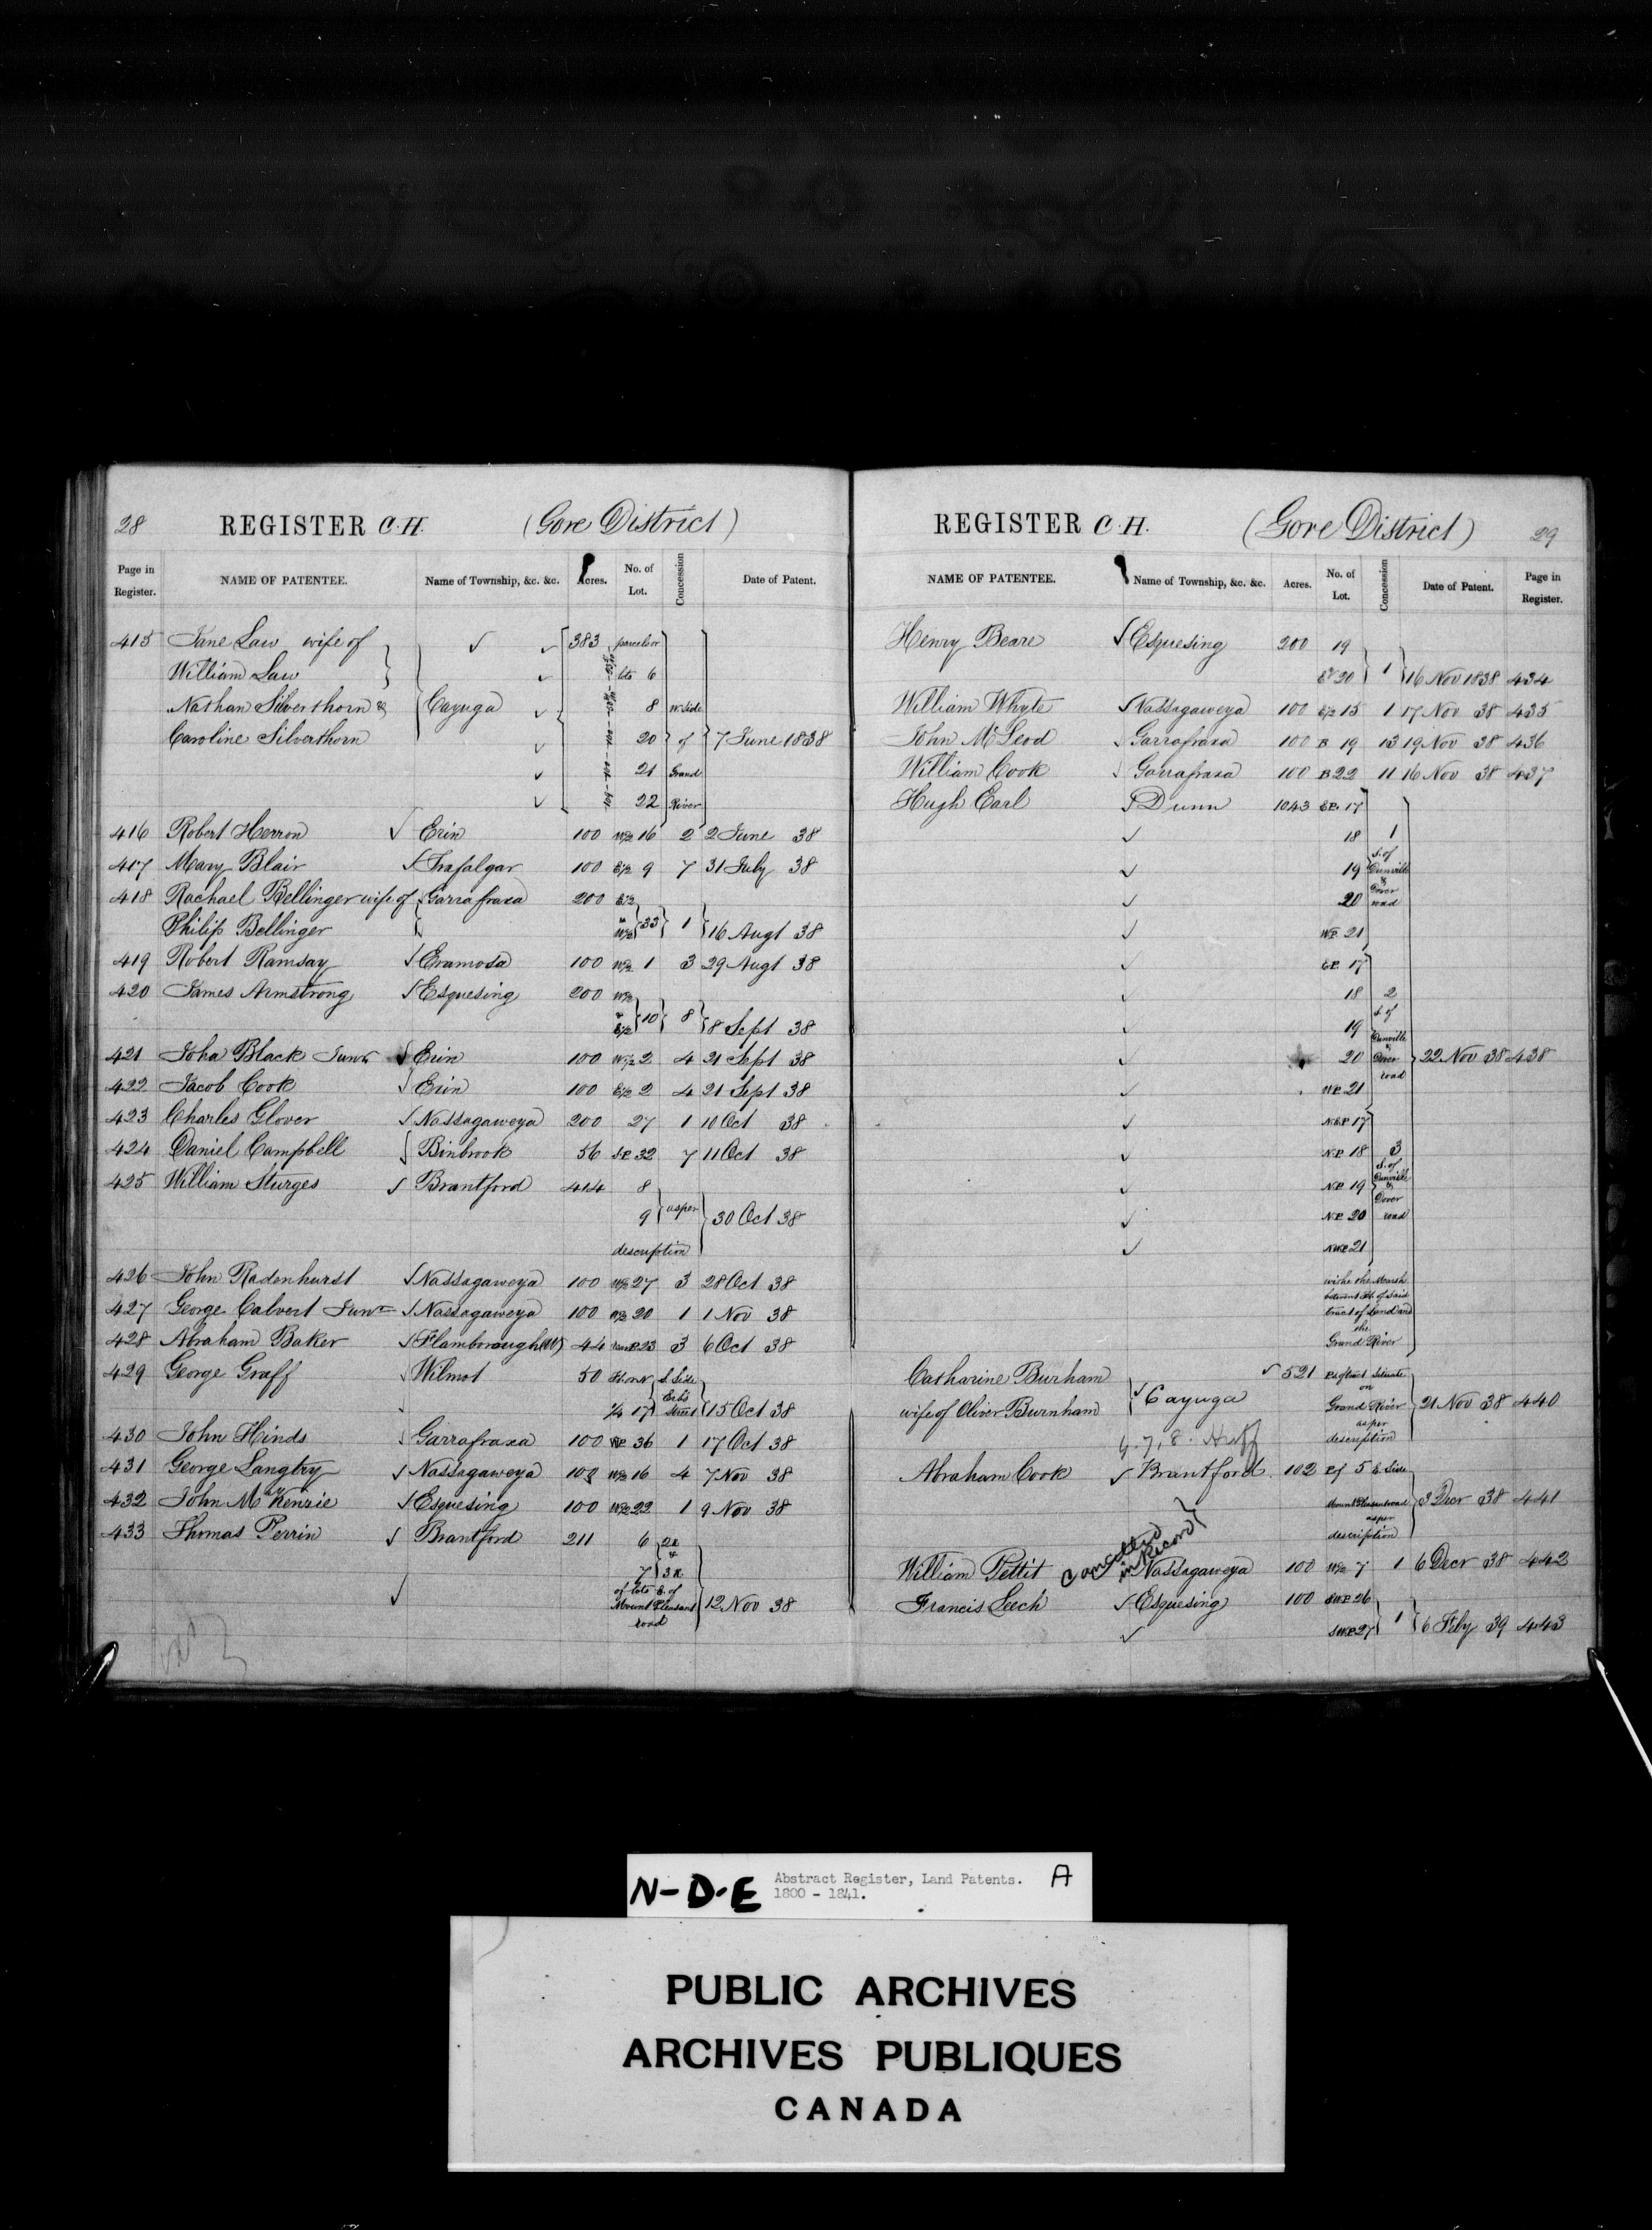 28 REGISTER C. H. (Gore District)
Page in Register. NAME OF PATENTEE. Name of Township, &c. &c. Acres. No. of Lot. Concession Date of Patent.
415 Jane Law wife of 383 parcels or
William Law lots 6
Nathan Silverthorn & Cayuga 8 W. Side
Caroline Silverthorn 20 of 7 June 1838
21 Grand
22 River
416 Robert Herron Erin 100 W½ 16 2 2 June 38
417 Mary Blair Trafalgar 100 E½ 9 7 31 July 38
418 Rachael Bellinger wife of Garrafraxa 200 E½
Philip Bellinger & W½ 33 1 16 Augt 38
419 Robert Ramsay Eramosa 100 W½ 1 3 29 Augt 38
420 James Armstrong Esquesing 200 W½
& E½ 10 8 8 Sept 38
421 John Black Junr Erin 100 W½ 2 4 21 Sept 38
422 Jacob Cook Erin 100 E½ 2 4 21 Sept 38
423 Charles Glover Nassagaweya 200 27 1 10 Oct 38
424 Daniel Campbell Binbrook 56 S.P. 32 7 11 Oct 38
425 William Sturges Brantford 414 8
9 as per 30 Oct 38
description
426 John Radenhurst Nassagaweya 100 W½ 27 3 28 Oct 38
427 George Calvert Junr Nassagaweya 100 20 1 1 Nov 38
428 Abraham Baker Flamborough (W) 44 23 3 6 Oct 38
429 George Graff Wilmot 50 S. Side
17 Street 15 Oct 38
430 John Hinds Garrafraxa 100 36 1 17 Oct 38
431 George Langtry Nassagaweya 100 W½ 16 4 7 Nov 38
432 John McKenzie Esquesing 100 W½ 22 1 9 Nov 38
433 Thomas Perrin Brantford 211 6 2 R
& 7 3 R
of lots E. of
Mount Pleasant 12 Nov 38
road
REGISTER C. H. (Gore District) 29
NAME OF PATENTEE. Name of Township, &c. &c. Acres. No. of Lot. Concession Date of Patent. Page in Register.
Henry Beare Esquesing 200 19
E½ 20 1 16 Nov 1838 434
William Whyte Nassagaweya 100 E½ 15 1 17 Nov 38 435
John McLeod Garrafraxa 100 B 19 13 19 Nov 38 436
William Cook Garrafraxa 100 B 22 11 16 Nov 38 437
Hugh Earl Dunn 1043 E.P. 17
18 1
S. of
19 Dunnville
&
20 Dover road
W.P. 21
E.P. 17
18 2
S. of
19 Dunnville
&
20 Dover 22 Nov 38 438
road
W.P. 21
N.E.P. 17
N.P. 18 3
S. of
N.P. 19 Dunnville
& Dover
N.P. 20 road
N.W.P. 21
with the Marsh
between of said
tract of Land and
the
Grand River
Catharine Burham 521 situate
on
wife of Oliver Burnham Cayuga Grand River 21 Nov 38 440
as per
description
4. 7, 8. Huff
Abraham Cook Brantford 102 P of 5 E. Side
Mount Pleasant road 3 Decr 38 441
as per
description
Cancelled
in Record
William Pettit Nassagaweya 100 W½ 7 1 6 Decr 38 442
Francis Leech Esquesing 100 S.W.P. 26
S.W.P. 27 1 6 Feby 39 443
N-D-E Abstract Register, Land Patents. A
1800 - 1841.
PUBLIC ARCHIVES
ARCHIVES PUBLIQUES
CANADA